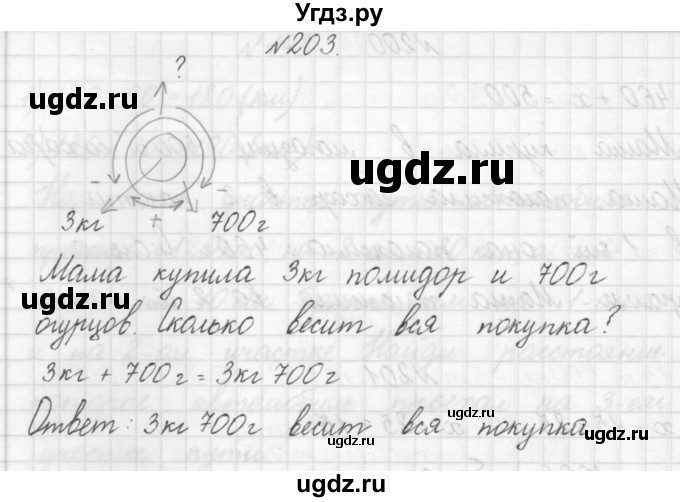 Угзд.ру
№203.
?
ugdz.ru
ugdz.ru
ugdz.ru
- -
3кг + 700г
Мама купила 3кг помидор и 700г
огурцов. Сколько весит вся покупка?
ugdz.ru
3кг + 700г = 3кг 700г
Ответ: 3кг 700г весит вся покупка
ugdz.ru
ugdz.ru
ugdz.ru